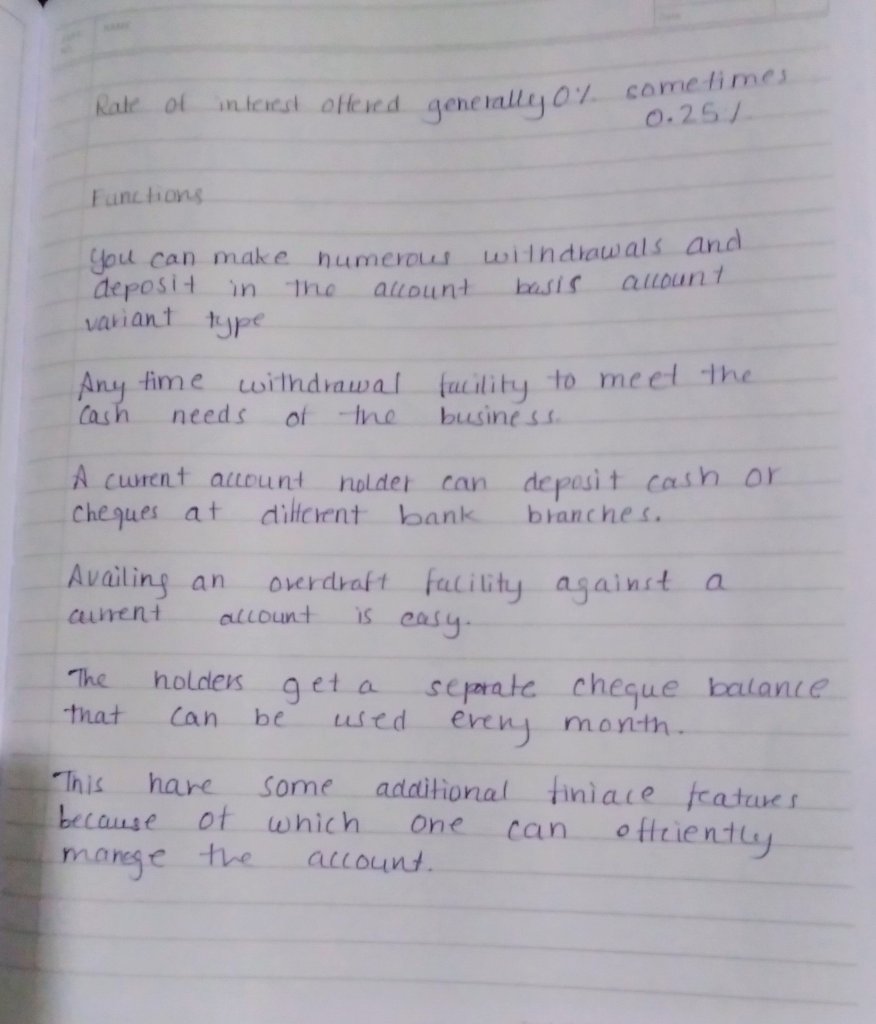 NAME
Date
Rate of interest offered generally 0% sometimes
0.25%
Functions
You can make numerous withdrawals and
deposit in the account basis account
variant type
Any time withdrawal facility to meet the
Cash needs of the business.
A current account holder can deposit cash or
cheques at different bank branches.
Availing an overdraft facility against a
current account is easy.
The holders get a seprate cheque balance
that can be used every month.
This have some additional finiace features
because of which one can efficiently
manege the account.